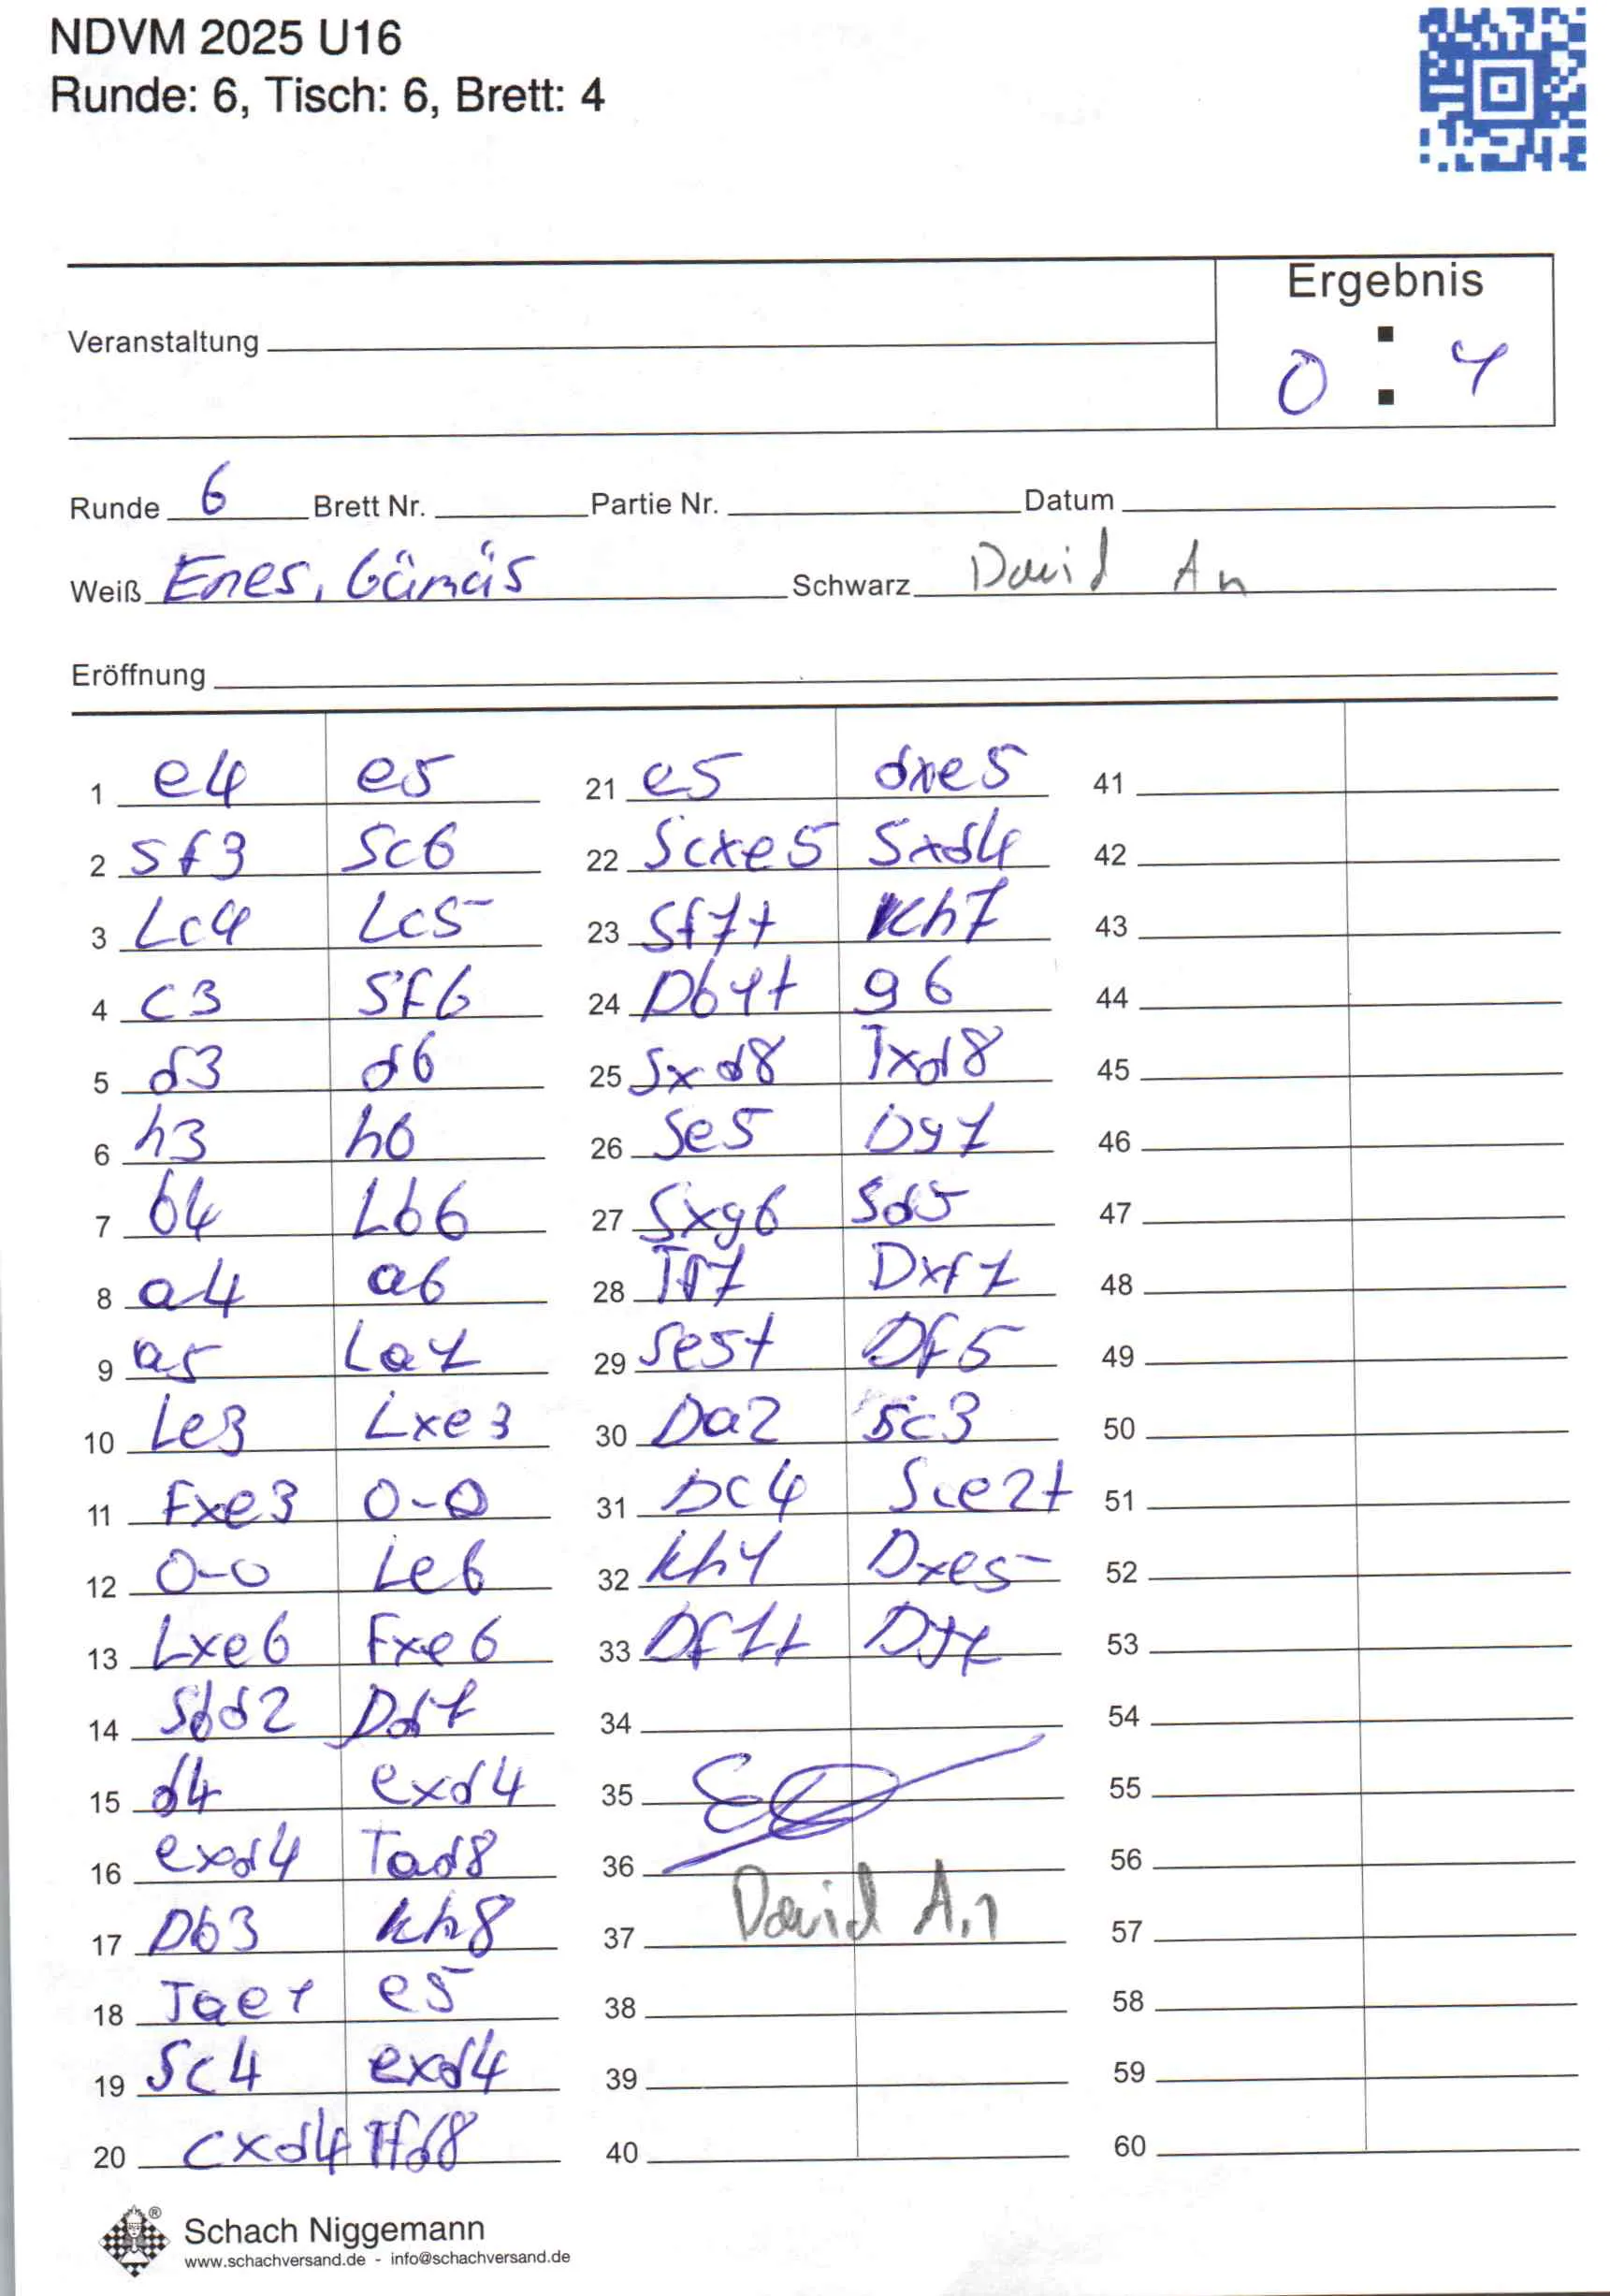 NDVM 2025 U16
Runde: 6, Tisch: 6, Brett: 4
Ergebnis
Veranstaltung
0 : 1
Runde 6 Brett Nr. Partie Nr. Datum
Weiß Enes, Gümüs Schwarz David An
Eröffnung
1 e4 e5
2 Sf3 Sc6
3 Lc4 Lc5
4 c3 Sf6
5 d3 d6
6 h3 h6
7 b4 Lb6
8 a4 a6
9 a5 La7
10 Le3 Lxe3
11 Fxe3 0-0
12 0-0 Le6
13 Lxe6 Fxe6
14 Sbd2 Dd7
15 d4 exd4
16 exd4 Tad8
17 Db3 Kh8
18 Tae1 e5
19 Sc4 exd4
20 cxd4 Tfd8
21 e5 dxe5
22 Scxe5 Sxd4
23 Sf7+ Kh7
24 Db1+ g6
25 Sxd8 Txd8
26 Se5 Dg7
27 Sxg6 Sd5
28 Tf7 Dxf7
29 Se5+ Df5
30 Da2 Sc3
31 Dc4 Sce2+
32 Kh1 Dxe5
33 Df1+
34
35
36
37 David An
38
39
40
41
42
43
44
45
46
47
48
49
50
51
52
53
54
55
56
57
58
59
60
Schach Niggemann
www.schachversand.de - info@schachversand.de